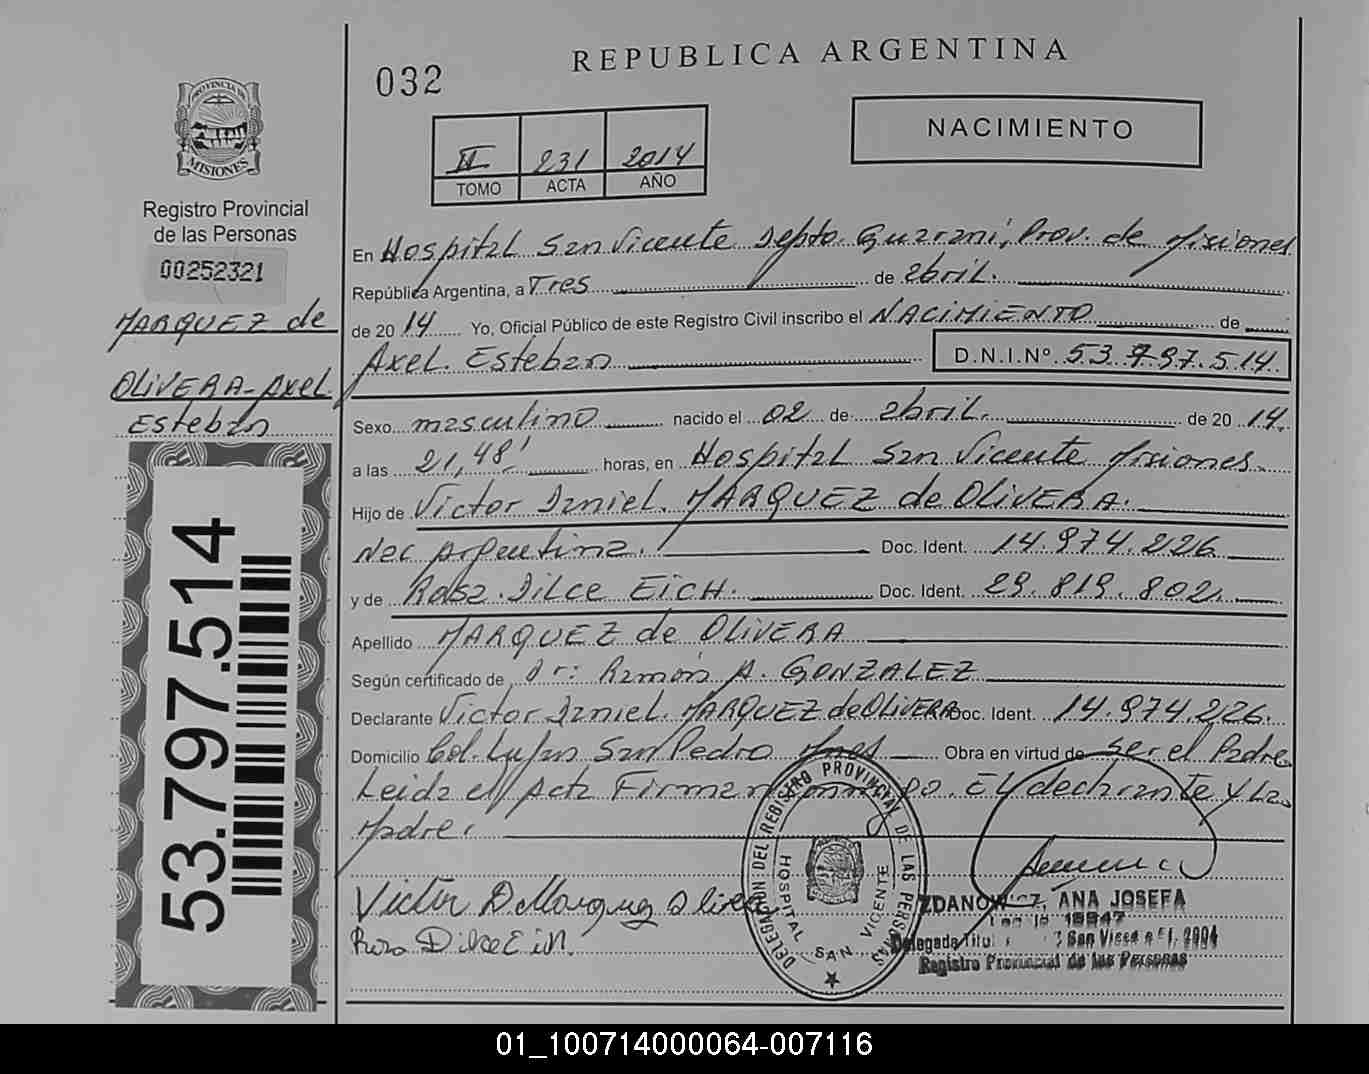 REPUBLICA ARGENTINA
032
NACIMIENTO
II 231 2014
TOMO ACTA AÑO
PROVINCIA DE
MISIONES
Registro Provincial
de las Personas
00252321
MARQUEZ de
OLIVERA-Axel
Esteban
53.797.514
En Hospital San Vicente Depto. Guarani, Prov. de Misiones
República Argentina, a Tres de abril.
de 2014 Yo, Oficial Público de este Registro Civil inscribo el NACIMIENTO de
Axel Esteban D.N.I.Nº 53.797.514
Sexo masculino nacido el 02 de abril. de 2014.
a las 21,48' horas, en Hospital San Vicente Misiones
Hijo de Victor Daniel. MARQUEZ de OLIVERA.
Nac Argentina. Doc. Ident. 14.974.226
y de Rosa. Dilce EICH. Doc. Ident. 29.819.802.
Apellido MARQUEZ de OLIVERA
Según certificado de Dr: Ramón A. GONZALEZ
Declarante Victor Daniel. MARQUEZ de OLIVERA Doc. Ident. 14.974.226.
Domicilio Col. Lujan San Pedro Mnes Obra en virtud de ser el Padre
Leida el Acta Firman El declarante y La
Madre.
Victor D Marquez Olivera
Rosa Dilce Eich.
DELEGACION DEL REGISTRO PROVINCIAL DE LAS PERSONAS
HOSPITAL SAN VICENTE
ANA JOSEFA
Delegada San Vicente
Registro Provincial de las Personas
01_100714000064-007116